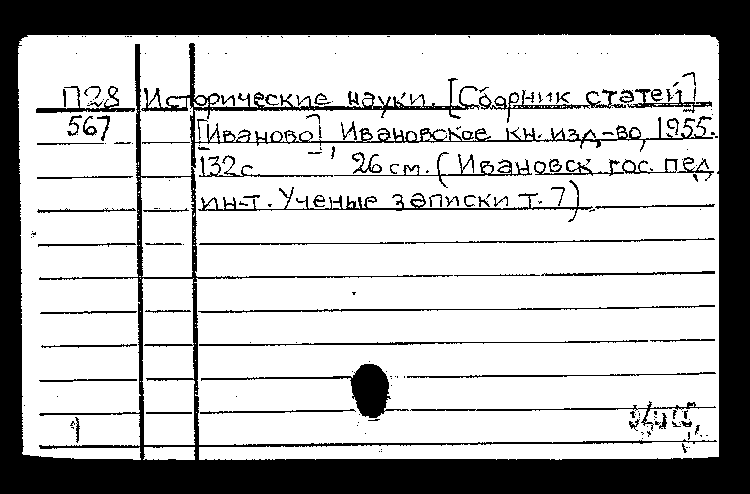 П28 Исторические науки. [Сборник статей]
567 [Иваново], Ивановское кн. изд-во, 1955.
132 с. 26 см. (Ивановск. гос. пед.
ин-т. Ученые записки т. 7)
1